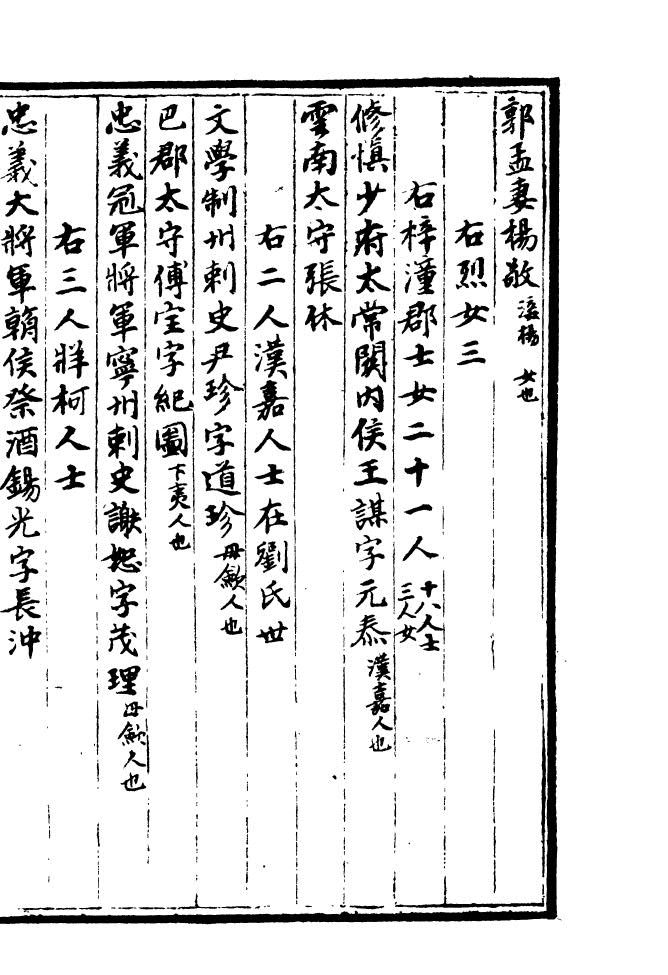 郭孟妻楊敬涪楊女也
右烈女三
右梓潼郡士女二十一人十八人士三人女
修慎少府太常關内侯王謀字元泰漢嘉人也
雲南太守張休
右二人漢嘉人士在劉氏世
文學制州刺史尹珍字道珍毋歛人也
巴郡太守傅宝字紀圖卞夷人也
忠義冠軍將軍寧州刺史謝恕字茂理毋歛人也
右三人牂柯人士
忠義大將軍侯祭酒錫光字長沖